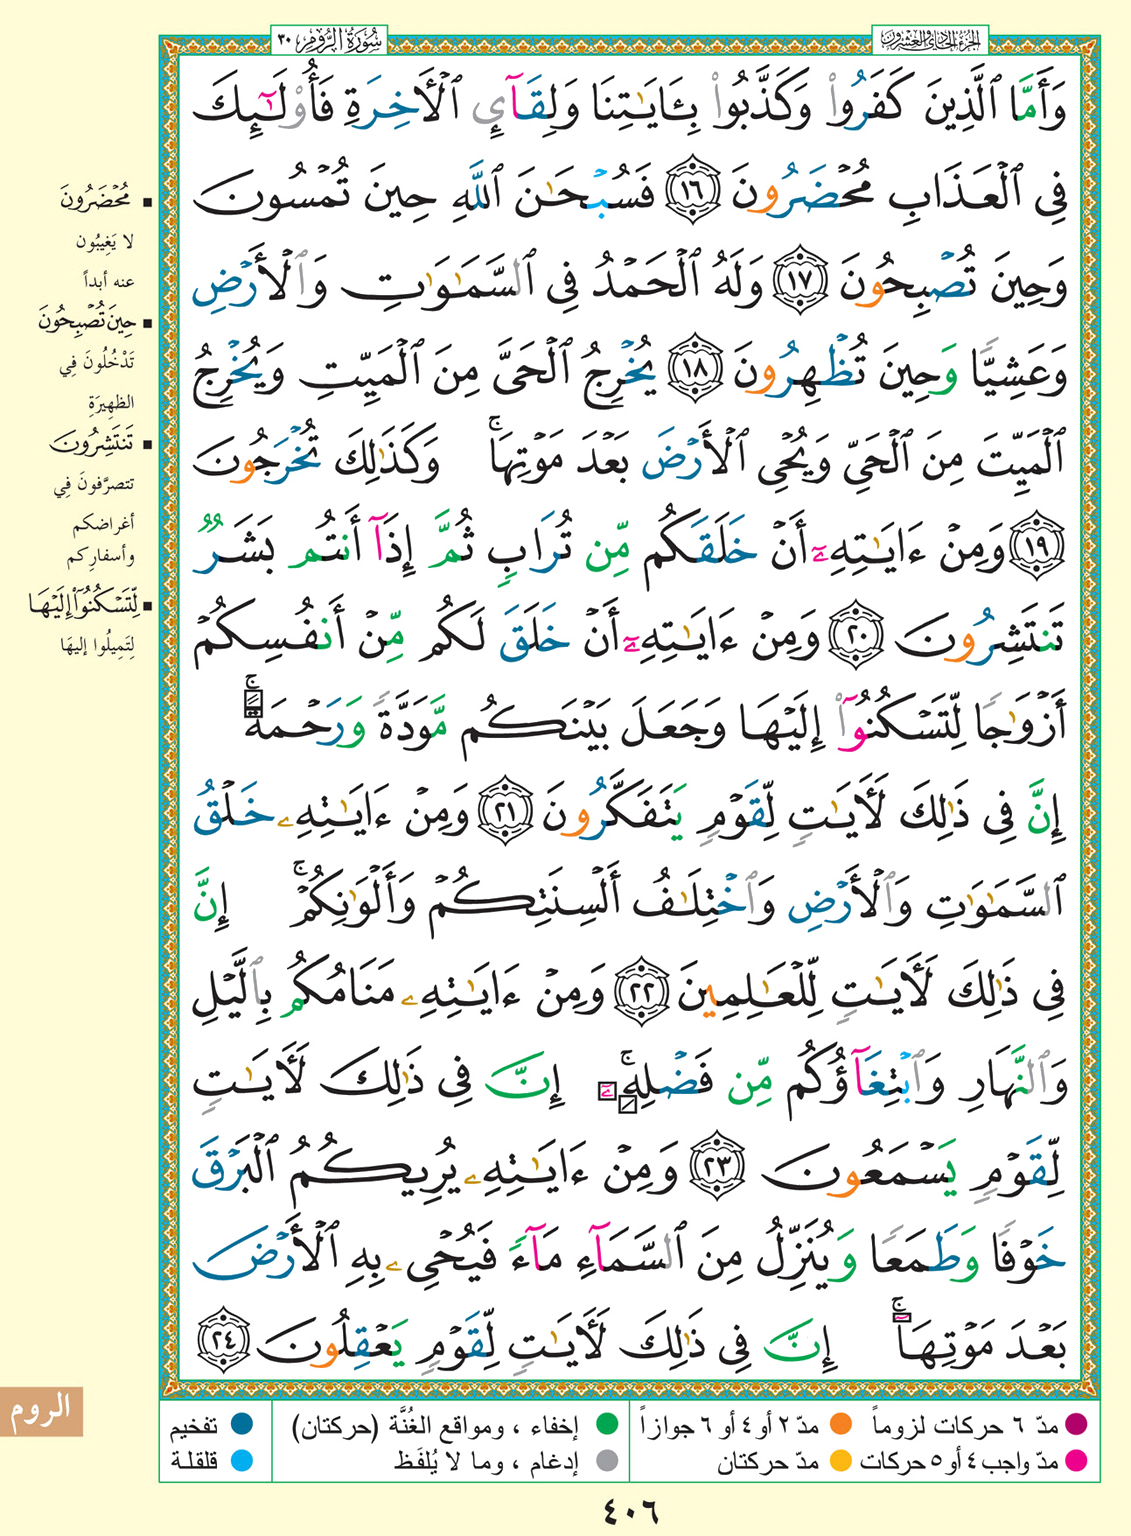 سُورَةُ الرُّومِ ٣٠
الجزء الحادي والعشرون
وَأَمَّا ٱلَّذِينَ كَفَرُوا۟ وَكَذَّبُوا۟ بِـَٔايَـٰتِنَا وَلِقَآئِ ٱلْـَٔاخِرَةِ فَأُو۟لَـٰٓئِكَ
فِى ٱلْعَذَابِ مُحْضَرُونَ ١٦ فَسُبْحَـٰنَ ٱللَّهِ حِينَ تُمْسُونَ
وَحِينَ تُصْبِحُونَ ١٧ وَلَهُ ٱلْحَمْدُ فِى ٱلسَّمَـٰوَٰتِ وَٱلْأَرْضِ
وَعَشِيًّا وَحِينَ تُظْهِرُونَ ١٨ يُخْرِجُ ٱلْحَىَّ مِنَ ٱلْمَيِّتِ وَيُخْرِجُ
ٱلْمَيِّتَ مِنَ ٱلْحَىِّ وَيُحْىِ ٱلْأَرْضَ بَعْدَ مَوْتِهَا ۚ وَكَذَٰلِكَ تُخْرَجُونَ
١٩ وَمِنْ ءَايَـٰتِهِۦٓ أَنْ خَلَقَكُم مِّن تُرَابٍ ثُمَّ إِذَآ أَنتُم بَشَرٌ
تَنتَشِرُونَ ٢٠ وَمِنْ ءَايَـٰتِهِۦٓ أَنْ خَلَقَ لَكُم مِّنْ أَنفُسِكُمْ
أَزْوَٰجًا لِّتَسْكُنُوٓا۟ إِلَيْهَا وَجَعَلَ بَيْنَكُم مَّوَدَّةً وَرَحْمَةً ۚ
إِنَّ فِى ذَٰلِكَ لَـَٔايَـٰتٍ لِّقَوْمٍ يَتَفَكَّرُونَ ٢١ وَمِنْ ءَايَـٰتِهِۦ خَلْقُ
ٱلسَّمَـٰوَٰتِ وَٱلْأَرْضِ وَٱخْتِلَـٰفُ أَلْسِنَتِكُمْ وَأَلْوَٰنِكُمْ ۚ إِنَّ
فِى ذَٰلِكَ لَـَٔايَـٰتٍ لِّلْعَـٰلِمِينَ ٢٢ وَمِنْ ءَايَـٰتِهِۦ مَنَامُكُم بِٱلَّيْلِ
وَٱلنَّهَارِ وَٱبْتِغَآؤُكُم مِّن فَضْلِهِۦٓ ۚ إِنَّ فِى ذَٰلِكَ لَـَٔايَـٰتٍ
لِّقَوْمٍ يَسْمَعُونَ ٢٣ وَمِنْ ءَايَـٰتِهِۦ يُرِيكُمُ ٱلْبَرْقَ
خَوْفًا وَطَمَعًا وَيُنَزِّلُ مِنَ ٱلسَّمَآءِ مَآءً فَيُحْىِۦ بِهِ ٱلْأَرْضَ
بَعْدَ مَوْتِهَآ ۚ إِنَّ فِى ذَٰلِكَ لَـَٔايَـٰتٍ لِّقَوْمٍ يَعْقِلُونَ ٢٤
مُحْضَرُونَ
لا يَغِيبُون
عنه أبداً
حِينَ تُصْبِحُونَ
تَدْخُلُونَ فِي
الظهِيرَةِ
تَنتَشِرُونَ
تتصرَّفونَ فِي
أغراضكم
وأسفارِكم
لِّتَسْكُنُوٓا۟ إِلَيْهَا
لِتَمِيلُوا إليهَا
الروم
مدّ ٦ حركات لزوماً مدّ ٢ أو ٤ أو ٦ جوازاً إخفاء ، ومواقع الغُنَّة (حركتان) تفخيم
مدّ واجب ٤ أو ٥ حركات مدّ حركتان إدغام ، وما لا يُلفَظ قلقلة
٤٠٦